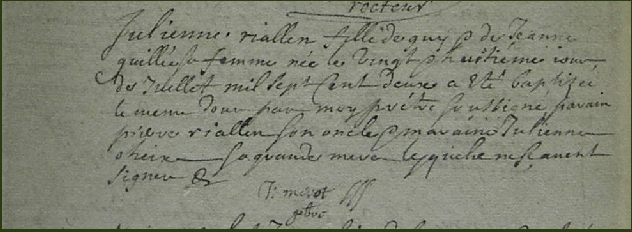 recteur
Julienne riallen fille de guy & de Jeanne
guillé sa femme née le vingt & huitieme iour
de Juillet mil sept Cent deux a eté baptizée
le meme Jour par moy prêtre soussigné parain
pierre riallen son oncle & maraine Julienne
sa grande mere lesquels ne sçavent
signer &
ptre